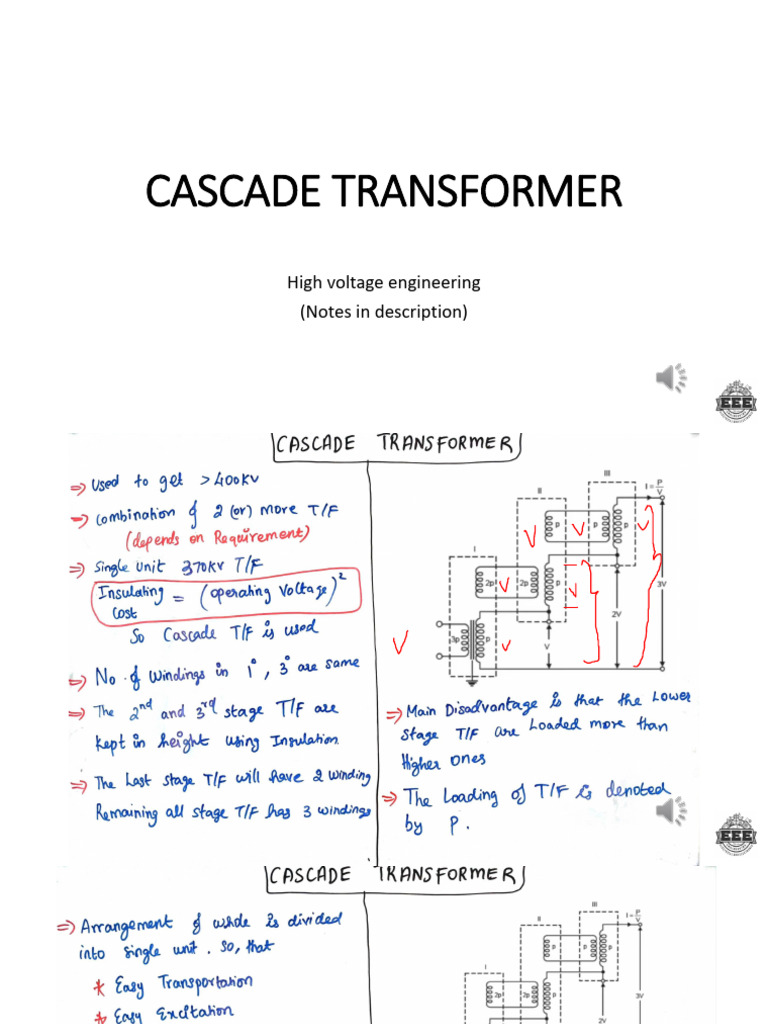 CASCADE TRANSFORMER
High voltage engineering
(Notes in description)
EEE
CASCADE TRANSFORMER
⇒ Used to get >400KV
⇒ Combination of 2 (or) more T/F
(depends on Requirement)
⇒ Single unit 370KV T/F
Insulating Cost = (operating voltage)²
So Cascade T/F is used
⇒ No. of windings in 1°, 3° are same
⇒ The 2nd and 3rd stage T/F are
kept in height using Insulation.
⇒ The Last stage T/F will have 2 winding
Remaining all stage T/F has 3 windings
I
II
III
I = P/V
3p
p
2p
2p
p
p
p
p
V
2V
3V
V
V
V
V
V
V
V
⇒ Main Disadvantage is that the Lower
stage T/F are Loaded more than
Higher ones
⇒ The Loading of T/F is denoted
by P.
EEE
CASCADE TRANSFORMER
⇒ Arrangement of whole is divided
into single unit. So, that
* Easy Transportation
* Easy Excitation
I
II
III
I = P/V
2p
2p
p
p
p
p
2V
3V